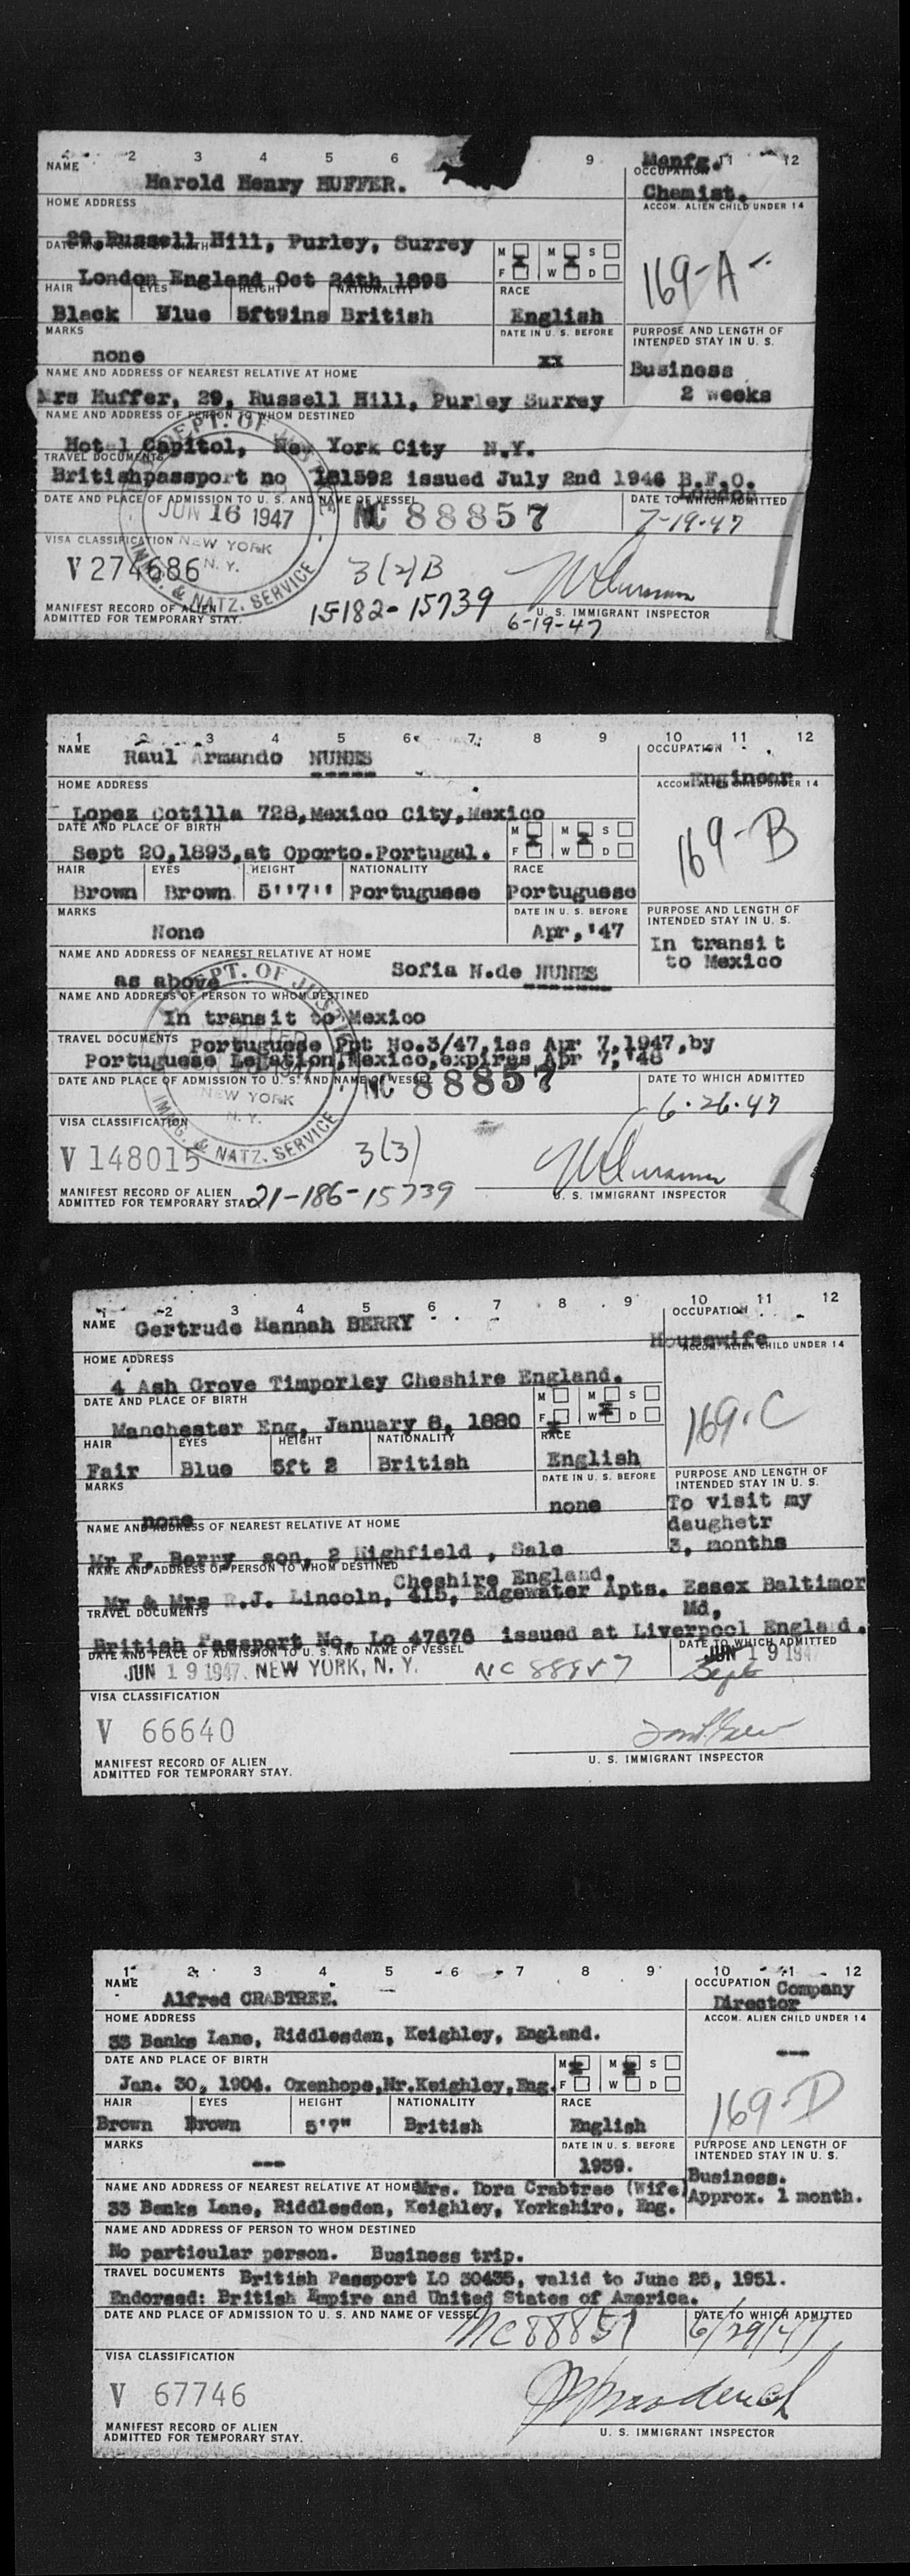 1 2 3 4 5 6 9 11 12
NAME Harold Henry HUFFER.
OCCUPATION Manfg. Chemist.
HOME ADDRESS
29, Russell Hill, Purley, Surrey
ACCOM. ALIEN CHILD UNDER 14
169-A
DATE AND PLACE OF BIRTH
London England Oct 24th 1895
M F M W S D
HAIR EYES HEIGHT NATIONALITY RACE
Black Blue 5ft9ins British English
MARKS
none
DATE IN U. S. BEFORE
xx
PURPOSE AND LENGTH OF
INTENDED STAY IN U. S.
Business
2 weeks
NAME AND ADDRESS OF NEAREST RELATIVE AT HOME
Mrs Huffer, 29, Russell Hill, Purley Surrey
NAME AND ADDRESS OF PERSON TO WHOM DESTINED
Hotel Capitol, New York City N.Y.
TRAVEL DOCUMENTS
Britishpassport no 181592 issued July 2nd 1946 B.F.O.
London
DATE AND PLACE OF ADMISSION TO U. S. AND NAME OF VESSEL
DEPT. OF JUSTICE
JUN 16 1947
NEW YORK
N. Y.
IMMIG. & NATZ. SERVICE
NC 88857
DATE TO WHICH ADMITTED
7-19-47
VISA CLASSIFICATION
V 274686
3(2)B
MANIFEST RECORD OF ALIEN
ADMITTED FOR TEMPORARY STAY.
15182-15739
U. S. IMMIGRANT INSPECTOR
6-19-47
1 2 3 4 5 6 7 8 9 10 11 12
NAME Raul Armando NUNES
OCCUPATION
Engineer
HOME ADDRESS
Lopez Cotilla 728,Mexico City,Mexico
ACCOM. ALIEN CHILD UNDER 14
169-B
DATE AND PLACE OF BIRTH
Sept 20,1893,at Oporto.Portugal.
M F M W S D
HAIR EYES HEIGHT NATIONALITY RACE
Brown Brown 5''7'' Portuguese Portuguese
MARKS
None
DATE IN U. S. BEFORE
Apr,'47
PURPOSE AND LENGTH OF
INTENDED STAY IN U. S.
In transit
to Mexico
NAME AND ADDRESS OF NEAREST RELATIVE AT HOME
as above Sofia N.de NUNES
NAME AND ADDRESS OF PERSON TO WHOM DESTINED
In transit to Mexico
TRAVEL DOCUMENTS Portuguese Ppt No.3/47,iss Apr 7,1947,by
Portuguese Legation,Mexico,expires Apr 7,'48
DATE AND PLACE OF ADMISSION TO U. S. AND NAME OF VESSEL
DEPT. OF JUSTICE
NEW YORK
N. Y.
IMMIG. & NATZ. SERVICE
NC 88857
DATE TO WHICH ADMITTED
6-26-47
VISA CLASSIFICATION
V 148015
3(3)
MANIFEST RECORD OF ALIEN
ADMITTED FOR TEMPORARY STAY
21-186-15739
U. S. IMMIGRANT INSPECTOR
1 2 3 4 5 6 7 8 9 10 11 12
NAME Gertrude Hannah BERRY
OCCUPATION
Housewife
HOME ADDRESS
4 Ash Grove Timporley Cheshire England.
ACCOM. ALIEN CHILD UNDER 14
169-C
DATE AND PLACE OF BIRTH
Manchester Eng, January 8, 1880
M F M W S D
HAIR EYES HEIGHT NATIONALITY RACE
Fair Blue 5ft 2 British English
MARKS
none
DATE IN U. S. BEFORE
none
PURPOSE AND LENGTH OF
INTENDED STAY IN U. S.
To visit my
daughetr
3, months
NAME AND ADDRESS OF NEAREST RELATIVE AT HOME
Mr F. Berry son, 2 Highfield , Sale
Cheshire England.
NAME AND ADDRESS OF PERSON TO WHOM DESTINED
Mr & Mrs R.J. Lincoln, 415, Edgewater Apts. Essex Baltimor
Md,
TRAVEL DOCUMENTS
British Passport No. Lo 47676 issued at Liverpool England.
DATE AND PLACE OF ADMISSION TO U. S. AND NAME OF VESSEL
JUN 19 1947. NEW YORK, N. Y. NC 88857
DATE TO WHICH ADMITTED
JUN 19 194
Sept
VISA CLASSIFICATION
V 66640
MANIFEST RECORD OF ALIEN
ADMITTED FOR TEMPORARY STAY.
U. S. IMMIGRANT INSPECTOR
1 2 3 4 5 6 7 8 9 10 11 12
NAME Alfred CRABTREE.
OCCUPATION Company
Director
HOME ADDRESS
33 Banks Lane, Riddlesden, Keighley, England.
ACCOM. ALIEN CHILD UNDER 14
---
169-D
DATE AND PLACE OF BIRTH
Jan. 30, 1904. Oxenhope,Nr.Keighley,Eng.
M F M W S D
HAIR EYES HEIGHT NATIONALITY RACE
Brown Brown 5'7" British English
MARKS
---
DATE IN U. S. BEFORE
1939.
PURPOSE AND LENGTH OF
INTENDED STAY IN U. S.
Business.
Approx. 1 month.
NAME AND ADDRESS OF NEAREST RELATIVE AT HOME Mrs. Dora Crabtree (Wife)
33 Banks Lane, Riddlesden, Keighley, Yorkshire, Eng.
NAME AND ADDRESS OF PERSON TO WHOM DESTINED
No particular person. Business trip.
TRAVEL DOCUMENTS British Passport LO 30435, valid to June 25, 1951.
Endorsed: British Empire and United States of America.
DATE AND PLACE OF ADMISSION TO U. S. AND NAME OF VESSEL
NC 88857
DATE TO WHICH ADMITTED
6/29/47
VISA CLASSIFICATION
V 67746
MANIFEST RECORD OF ALIEN
ADMITTED FOR TEMPORARY STAY.
U. S. IMMIGRANT INSPECTOR